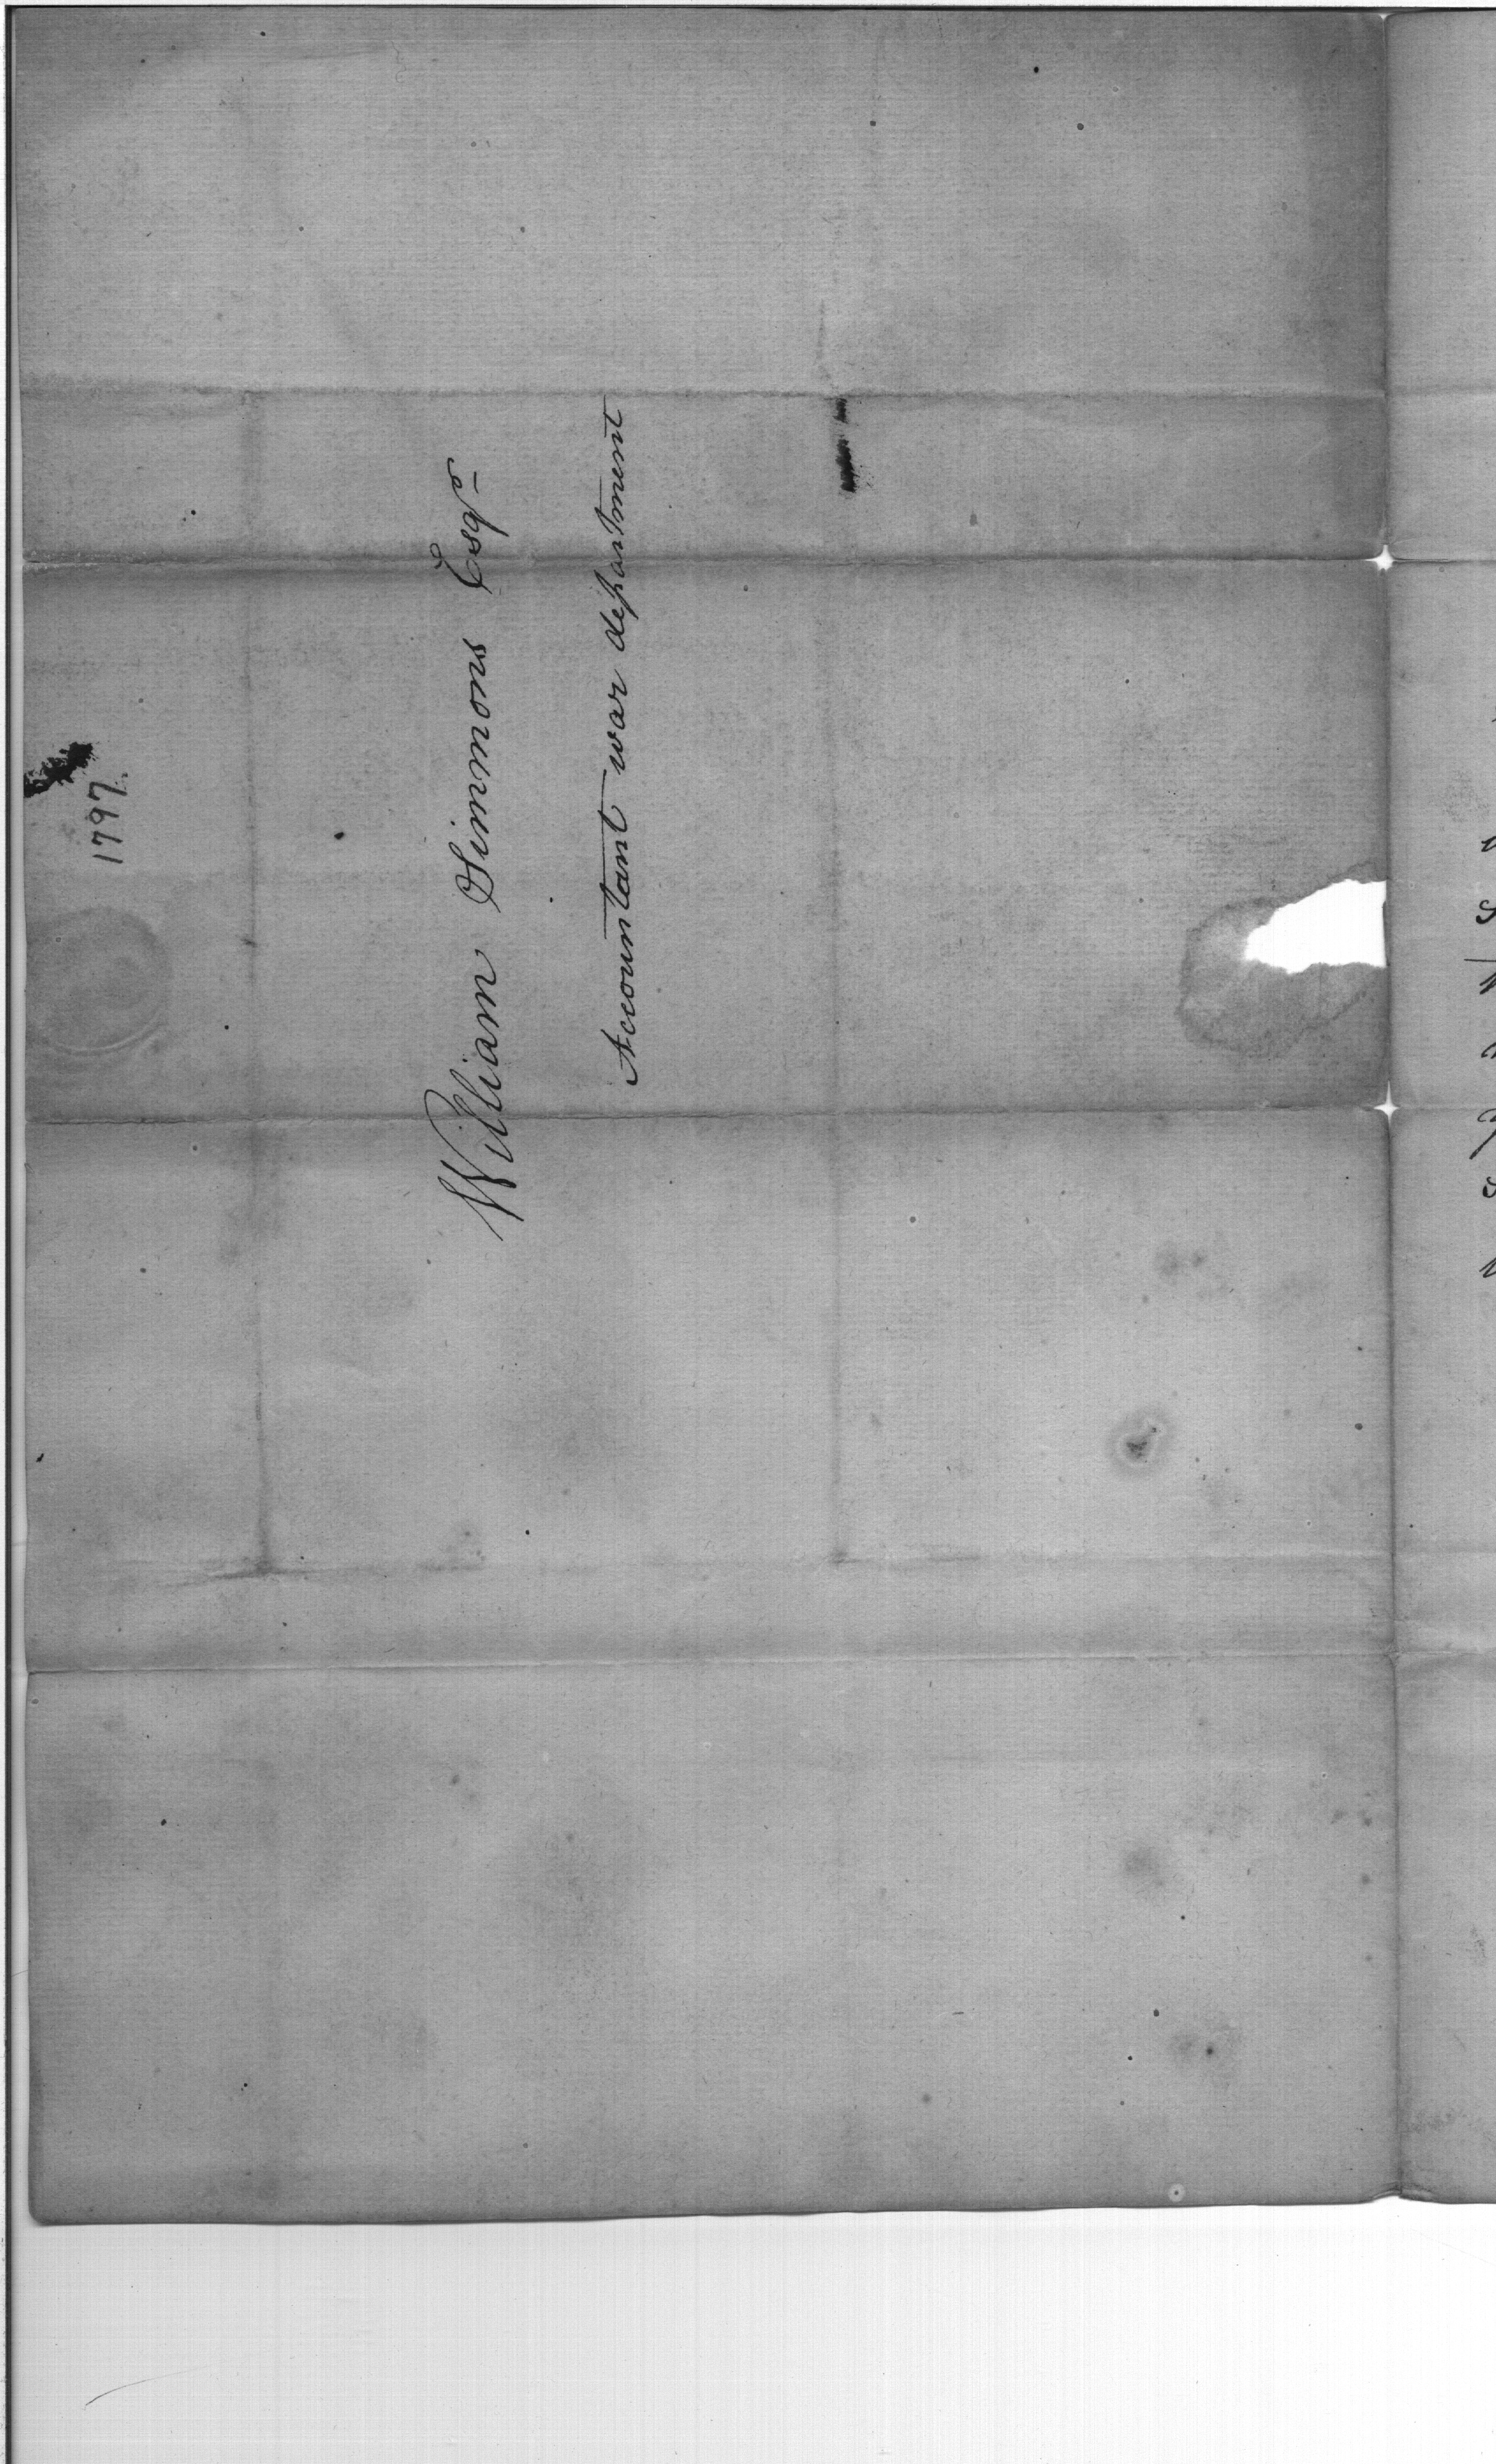 1797.
William Simmons Esqr
Accountant war department